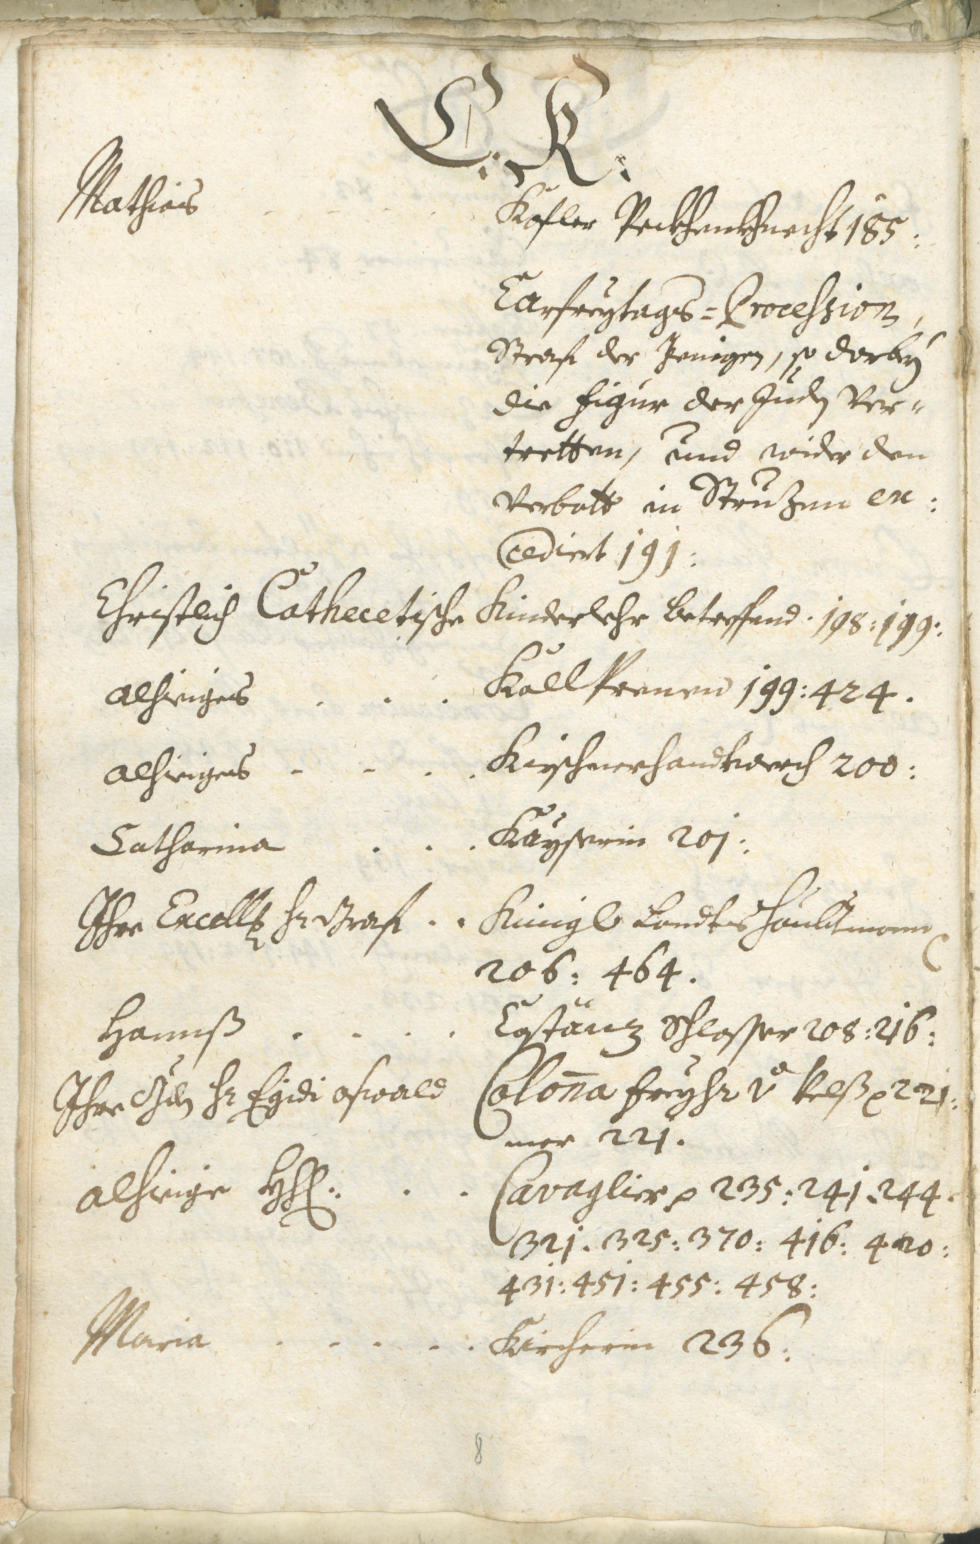 C: K:
Mathias Kofler Peckhenkhnecht 185:
Carfreytags-Procession,
Straf der Jenigen, so darbey
die figur der Juden ver-
tretten, und wider den
verbott in excediert 191:
Christlich Cathecetische Kinderlehr betreffend. 198: 199:
alhieiges . . . Kall 199: 424.
alhieiges - - . . Kirschnerhandtwerch 200:
Catharina . . . Kayserin 201:
Ihre Excell: Hr Graf . . Künigl Landtshaubtman
206: 464.
Hannß . . . . Schlosser 208: 216:
Ihro Hr Egidi oswald Colonna freyhr v Velß 221:
mer 221.
alhieige . . Cavaglier 235: 241. 244.
321. 325: 370: 416: 420:
431: 451: 455: 458:
Maria . - . . . Kircherin 236:
8